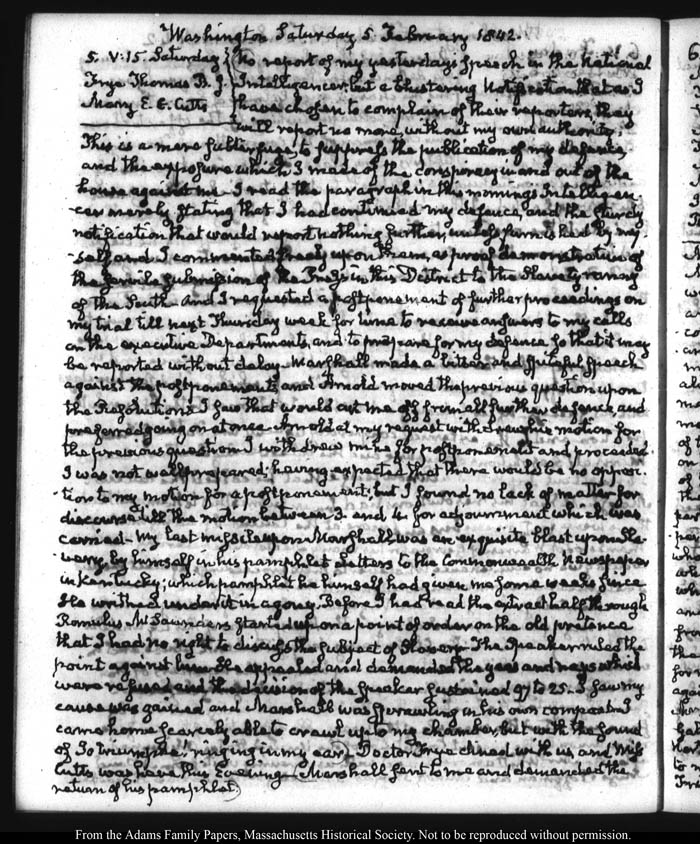 Washington Saturday 5 February 1842.
5. V:15. Saturday
Frye Thomas B. J.
Mary E. E. Cutts
No report of my yesterdays speech in the National
Intelligencer, but a blustering Notification that as I
have chosen to complain of their reporters, they
will report no more, without my own authority.
This is a mere subterfuge, to suppress the publication of my defence,
and the exposure which I made of the conspiracy in and out of the
house against me. I read the paragraph in this mornings Intelligen-
cer merely stating that I had continued my defence, and the sturdy
notification that would report nothing further, unless furnished by my-
self, and I commented freely upon them, as proof demonstrative of
the servile submission of the Press in this District to the Slavery
of the South. And I requested a postponement of further proceedings on
my trial till next Thursday week for time to receive answers to my calls
on the executive Departments, and to prepare for my defence so that it may
be reported without delay. Marshall made a bitter and spiteful speech
against the postponement, and Arnold moved the previous question upon
the Resolutions. I saw that would cut me off from all further defence, and
preferred going on at once. Arnold at my request withdrew his motion for
the previous question. I withdrew mine for postponement and proceeded
I was not well prepared; having expected that there would be no opposi-
tion to my motion for a postponement; but I found no lack of matter for
discourse till the motion between 3 and 4 for adjournment which was
carried. My last missile upon Marshall was an exquisite blast upon sla-
very, by himself in his pamphlet Letters to the Commonwealth Newspaper
in Kentucky; which pamphlet he himself had given me some weeks since
He writhed under it in agony. Before I had read the extract half through
Romulus M. Saunders started up on a point of order on the old pretence
that I had no right to discuss the subject of Slavery. The Speaker ruled the
point against him. He appealed and demanded the yeas and nays which
were refused and the decision of the Speaker sustained 97 to 25. I saw my
cause was gained, and Marshall was sprawling in his own compost. I
came home scarcely able to crawl up to my chamber, but with the sound
of Io triumphe! ringing in my ear. Doctor Frye dined with us, and Miss
Cutts was here this Evening. (Marshall sent to me and demanded the
return of his pamphlet.)
From the Adams Family Papers, Massachusetts Historical Society. Not to be reproduced without permission.